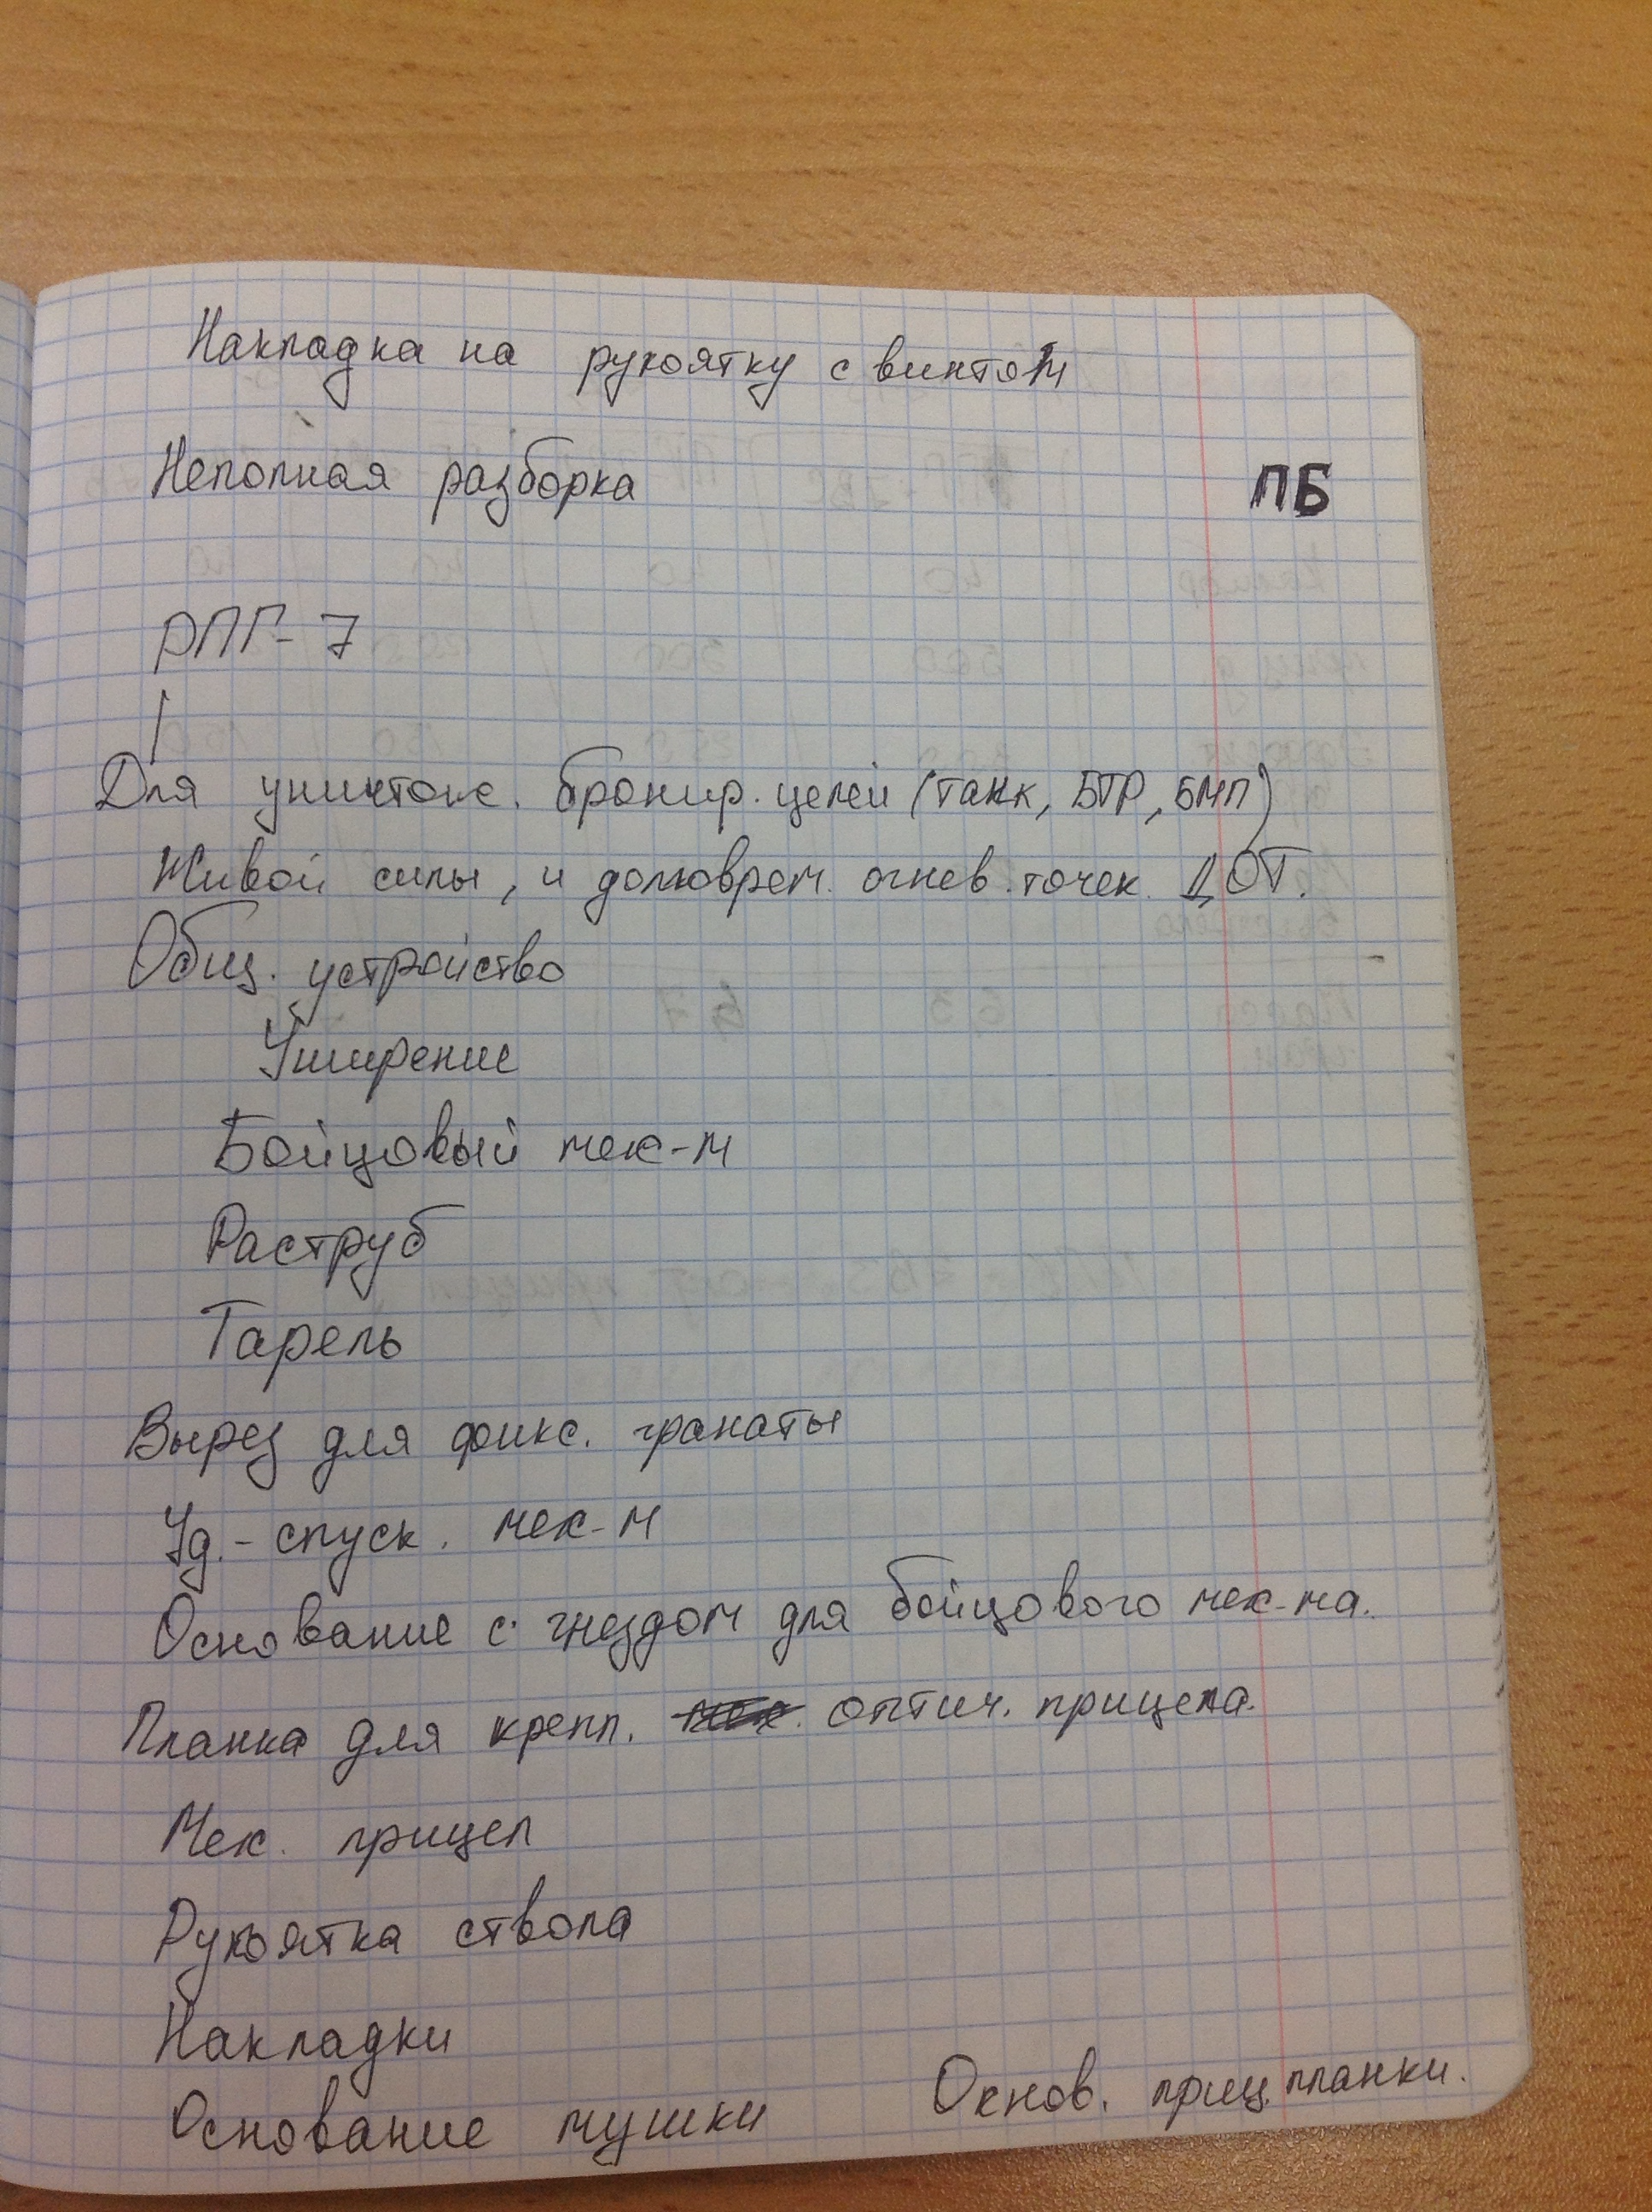 Накладка на рукоятку с винтом
Неполная разборка ПБ
РПГ-7
Для уничтож. бронир. целей (танк, БТР, БМП)
Живой силы, и долговрем. огнев. точек. ДОТ.
Общ. устройство
Уширение
Бойцовый мех-м
Раструб
Тарель
Вырез для фикс. гранаты
Уд.-спуск. мех-м
Основание с гнездом для бойцового мех-ма.
Планка для крепл. оптич. прицела.
Мех. прицел
Рукоятка ствола
Накладки
Основание мушки Основ. приц. планки.